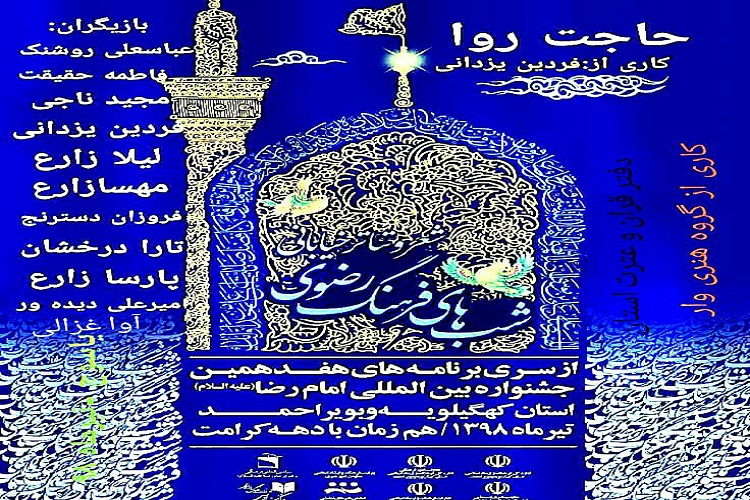 حاجت روا
کاری از:فردین یزدانی
بازیگران:
عباسعلی روشنک
فاطمه حقیقت
مجید ناجی
فردین یزدانی
لیلا زارع
مهسازارع
فروزان دسترنج
تارا درخشان
پارسا زارع
امیرعلی دیده ور
آوا غزالی
کاری از گروه هنری وار
دفتر قران و عترت استان
خیابانی
شب های فرهنگ رضوی
ازسری برنامه های هفدهمین
جشنواره بین المللی امام رضا(علیه السلام)
استان کهگیلویه وبویراحمد
تیرماه ۱۳۹۸/هم زمان با دهه کرامت